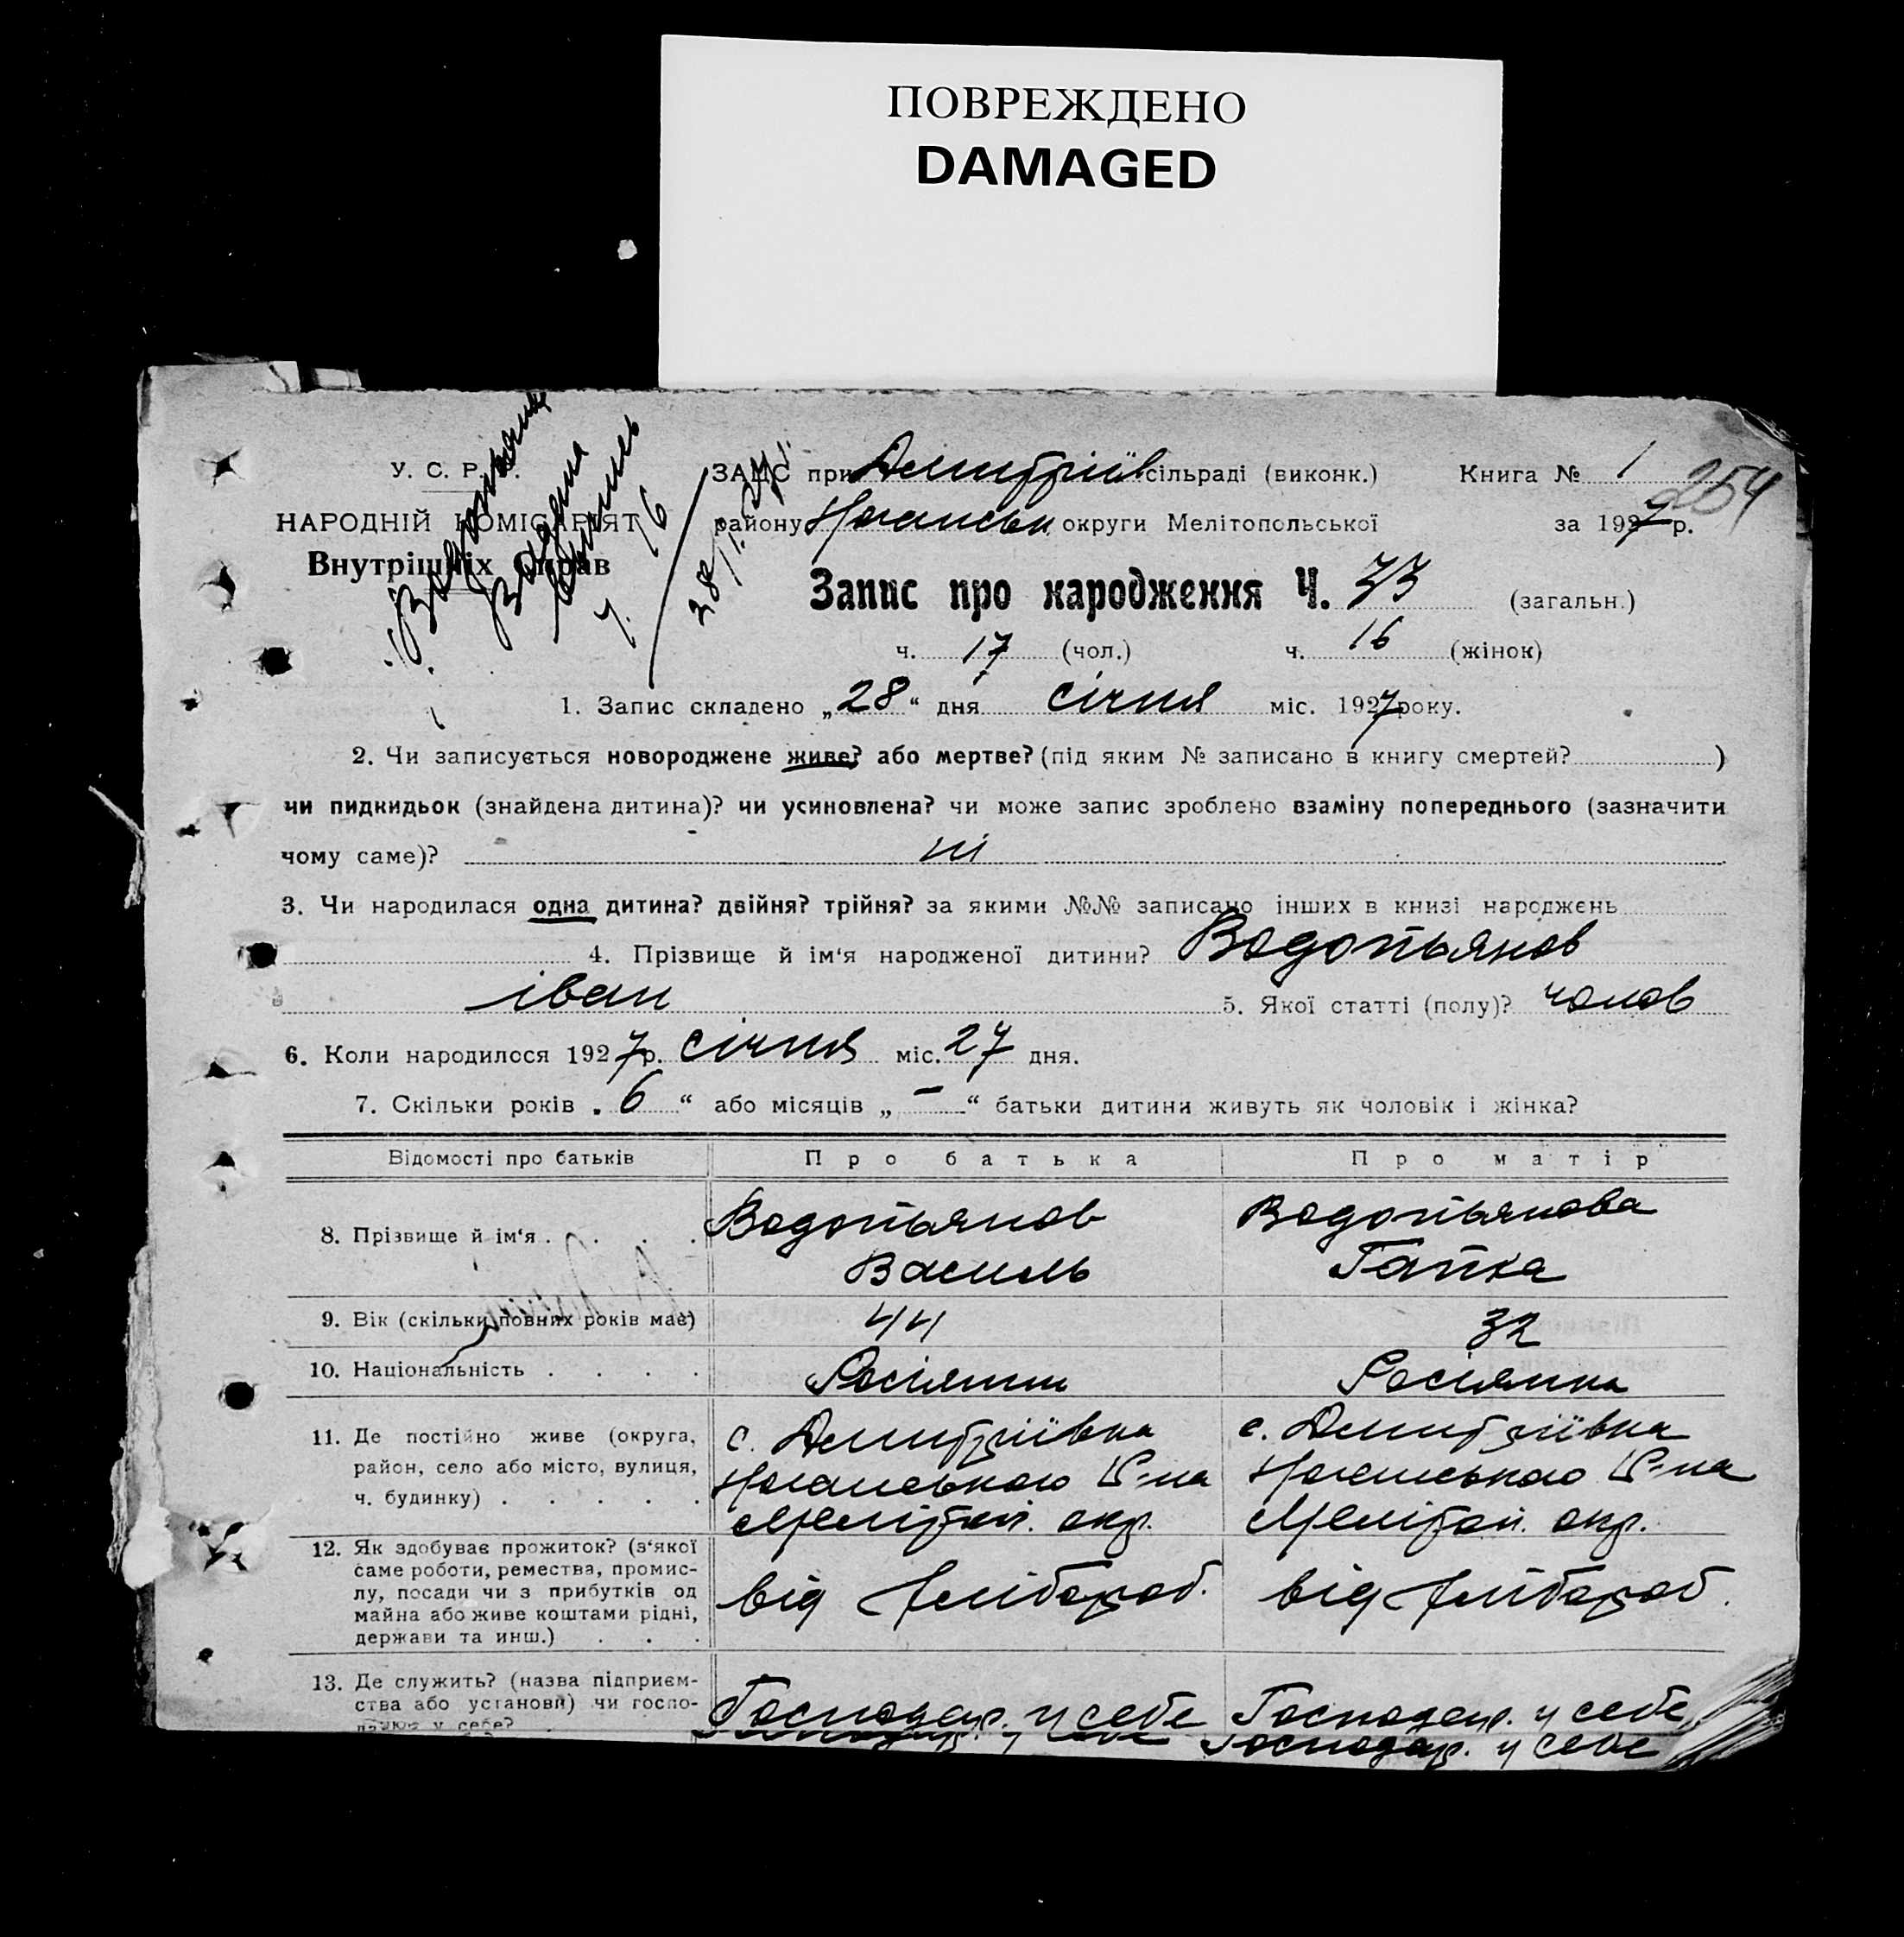 ПОВРЕЖДЕНО
DAMAGED
У. С. Р. Р.
НАРОДНІЙ КОМІСАРІЯТ
Внутрішніх Справ
28/I. 27
ЗАЦС при Дмитріїв сільраді (виконк.) Книга № 1
254
району Ногайськ. округи Мелітопольської за 1927 р.
Запис про народження Ч. 33 (загальн.)
ч. 17 (чол.) ч. 16 (жінок)
1. Запис складено „28“ дня січня міс. 1927 року.
2. Чи записується новороджене живе? або мертве? (під яким № записано в книгу смертей? )
чи пидкидьок (знайдена дитина)? чи усиновлена? чи може запис зроблено взаміну попереднього (зазначити
чому саме)? ні
3. Чи народилася одна дитина? двійня? трійня? за якими №№ записано інших в книзі народжень
4. Прізвище й ім'я народженої дитини? Водопьянов
іван 5. Якої статті (полу)? чолов
6. Коли народилося 1927 р. січня міс. 27 дня.
7. Скільки років „6“ або місяців „–“ батьки дитини живуть як чоловік і жінка?
Відомості про батьків Про батька Про матір
8. Прізвище й ім'я . . . . Водопьянов Василь Водопьянова Гапка
9. Вік (скільки повних років має) 44 32
10. Національність . . . . Росіянин Росіянка
11. Де постійно живе (округа,
район, село або місто, вулиця,
ч. будинку) . . . . .
с. Дмитріївка
Ногайського Р-на
Меліtоп. окр.
с. Дмитріївка
Ногайського Р-на
Мелітоп. окр.
12. Як здобуває прожиток? (з'якої
саме роботи, ремества, промис-
лу, посади чи з прибутків од
майна або живе коштами рідні,
держави та инш.) . . .
від хлібороб.
від хлібороб.
13. Де служить? (назва підприєм-
ства або установи) чи госпо-
дарює у себе?
Господар. у себе
Господар. у себе
Господар. у себе
Господар. у себе